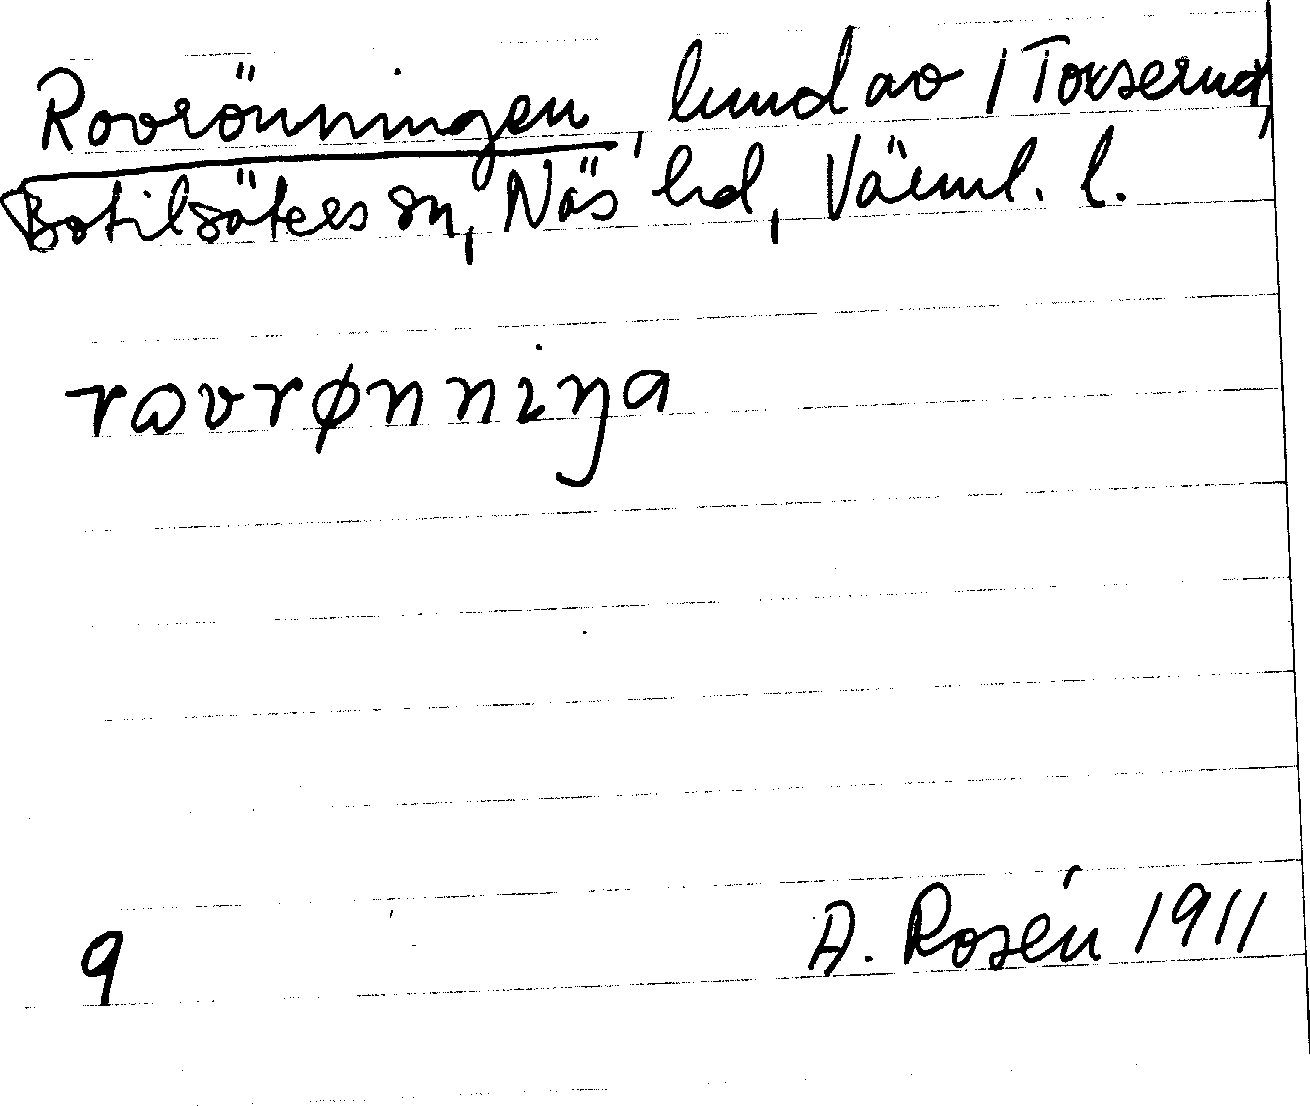 Rovrönningen, lund av 1 Torserud,
Botilsäters sn, Näs hd, Värml. l.
rovrønniŋa
9
A. Rosén 1911